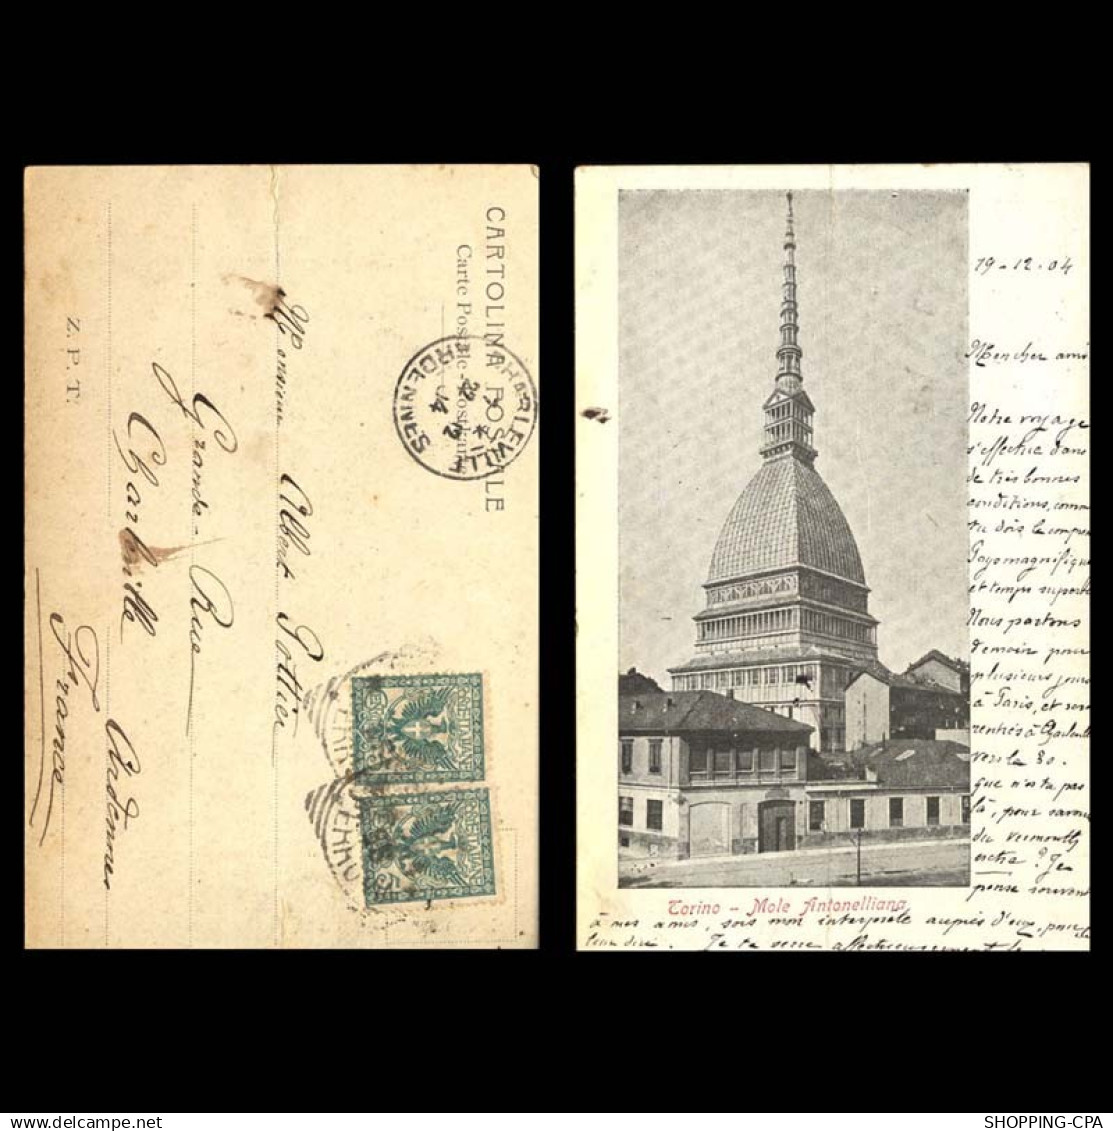 CARTOLINA POSTALE
Carte Postale - Postkarte
CHARLEVILLE
ARDENNES
22
12
04
Monsieur Albert Pottier
Grande-Rue
Charleville
Ardennes
France
Z. P. T.
19-12-04
Mon cher ami
Notre voyage
s'effectue dans
de très bonnes
conditions, comm
tu dois le compren
Pays magnifique
et temps superbe
Nous partons
demain pour
plusieurs jours
à Paris, et ser
rentrés à Charlevill
vers le 30.
Que n'es tu pas
là, pour savour
du vermouth
extra ? Je
pense souvent
Torino - Mole Antonelliana
à mes amis, sois mon interprète auprès d'eux, pour
leur dire. Je te serre affectueusement la
SHOPPING-CPA